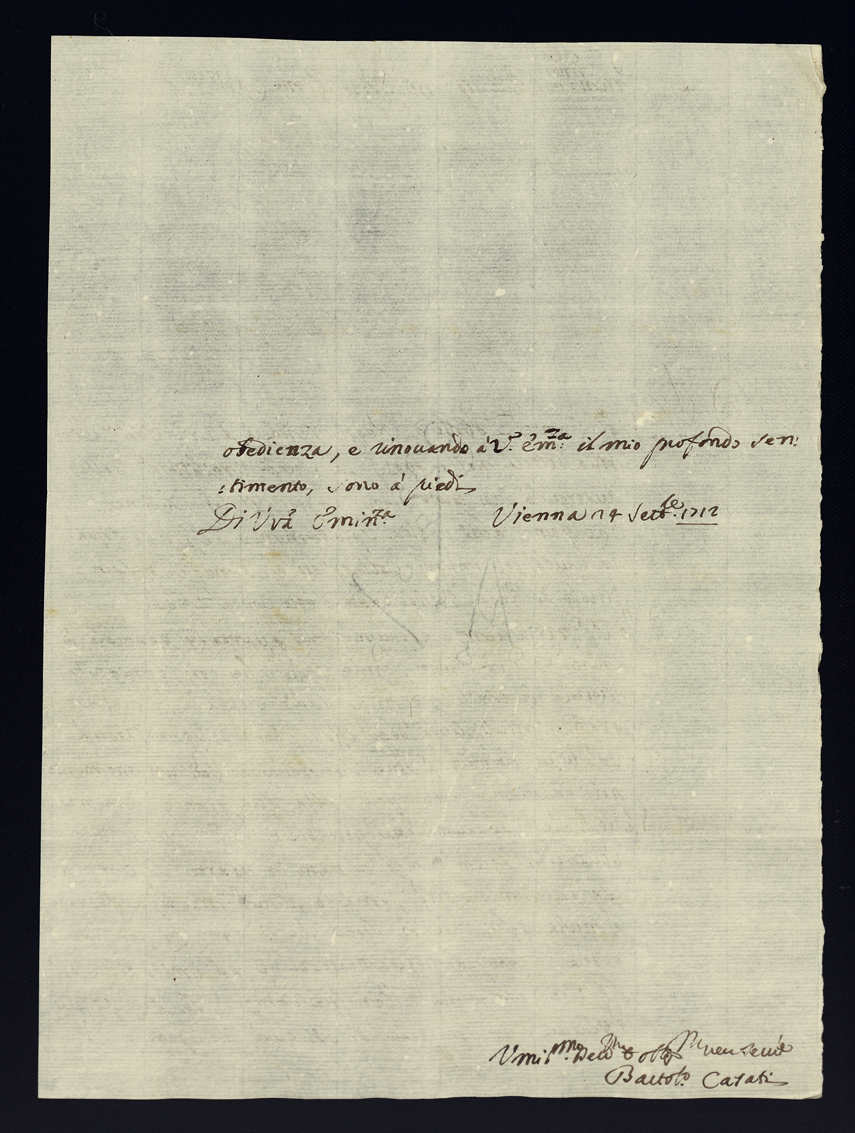 obedienza, e rinouando á V.ª Em.za: il mio profondo sen:
:timento, sono á piedi
Di Vrã Emin.za Vienna 14 Sett.re 1712
Vmil.mo Deu.mo & obl.mo
Bartol.o Casati